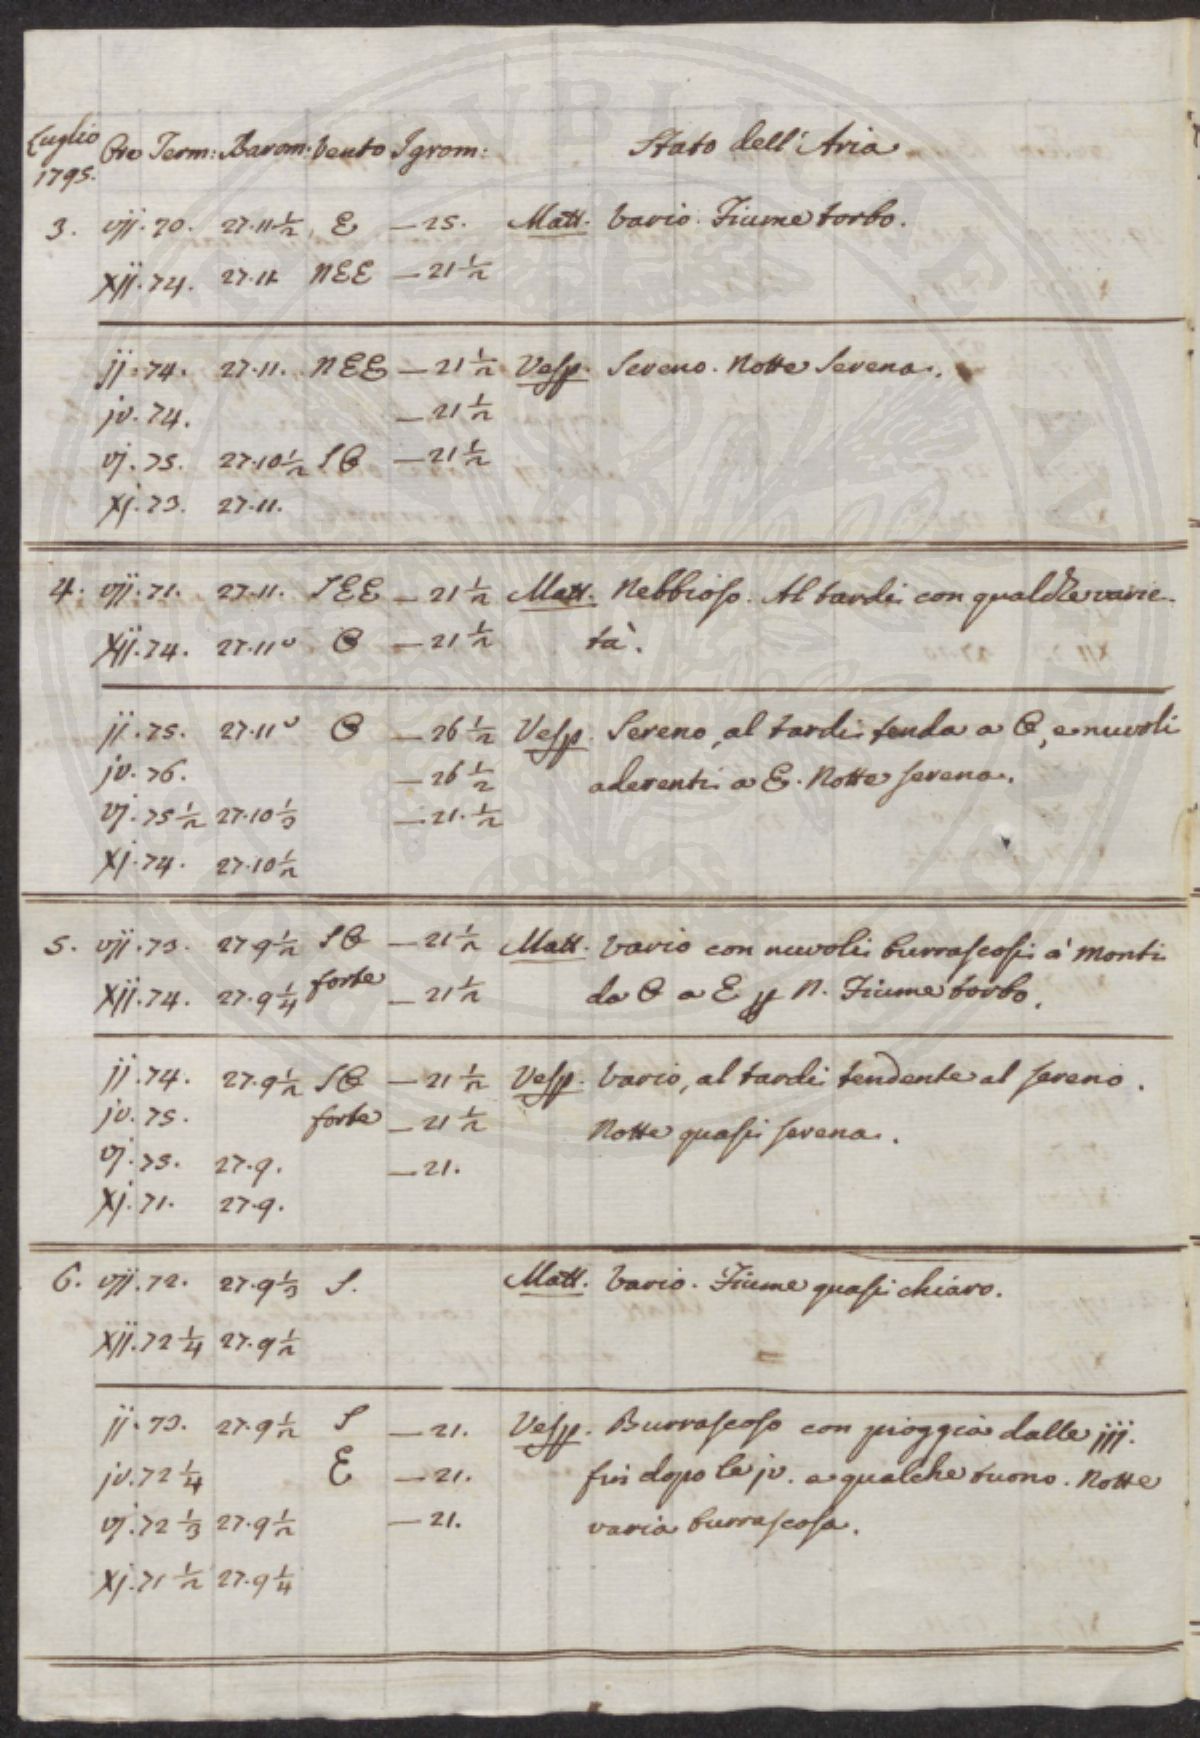 Luglio 1795. Ore Term: Barom: Vento Igrom: Stato dell' Aria
3. vij. 70. 27.11 1/2 E — 25. Matt. Vario. Fiume torbo.
Xij. 74. 27.11 NEE — 21 1/2
ij. 74. 27.11. NEE — 21 1/2 Vesp. Sereno. Notte serena.
jv. 74. — 21 1/2
vj. 75. 27.10 1/2 SO — 21 1/2
Xj. 73. 27.11.
4. vij. 71. 27.11. SEE — 21 1/2 Matt. Nebbioso. Al tardi con qualche varie-
Xij. 74. 27.11 O — 21 1/2 tà.
ij. 75. 27.11 O — 26 1/2 Vesp. Sereno, al tardi tenda a O, e nuvoli
jv. 76. — 26 1/2 aderenti a E. Notte serena.
vj. 75 1/2 27.10 1/3 — 21. 1/2
Xj. 74. 27.10 1/2
5. vij. 73. 27.9 1/2 SO — 21 1/2 Matt. Vario con nuvoli burrascosi a' monti
Xij. 74. 27.9 1/4 forte — 21 1/2 da O a E p N. Fiume torbo.
ij. 74. 27.9 1/2 SO — 21 1/2 Vesp. Vario, al tardi tendente al sereno.
jv. 75. forte — 21 1/2 Notte quasi serena.
vj. 75. 27.9. — 21.
Xj. 71. 27.9.
6. vij. 72. 27.9 1/3 S. Matt. Vario. Fiume quasi chiaro.
Xij. 72 1/4 27.9 1/2
ij. 73. 27.9 1/2 S — 21. Vesp. Burrascoso con pioggia dalle iij.
jv. 72 1/4 E — 21. fin dopo le jv. a qualche tuono. Notte
vj. 72 1/3 27.9 1/2 — 21. varia burrascosa.
Xj. 71 1/2 27.9 1/4